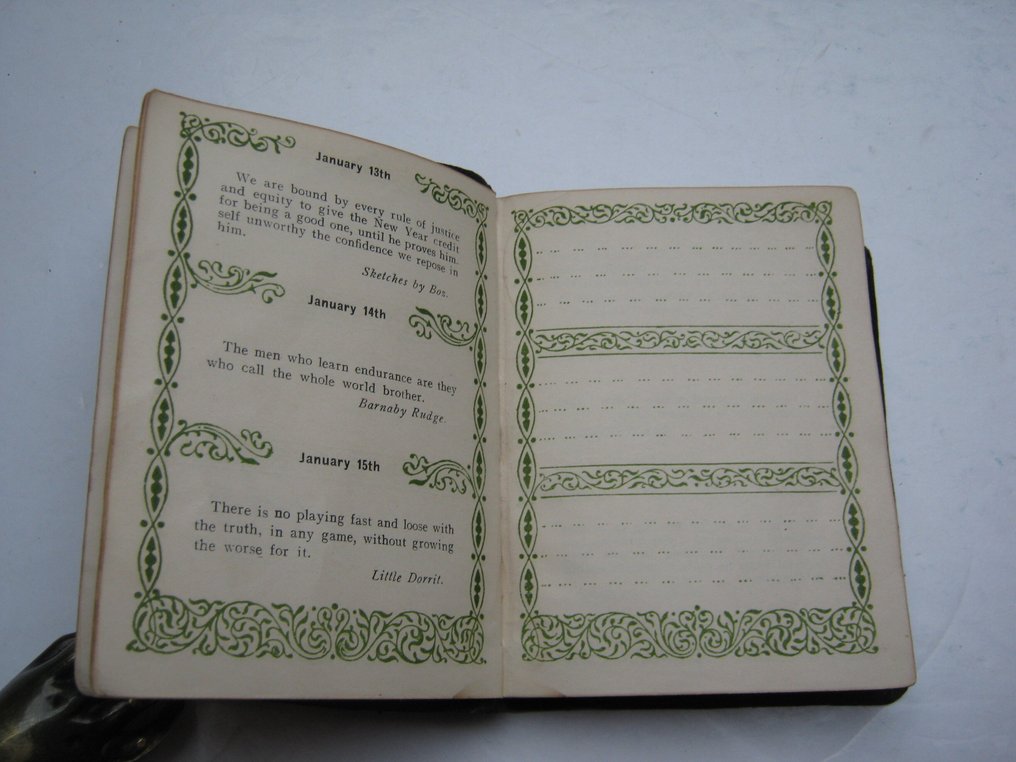 January 13th
We are bound by every rule of justice
and equity to give the New Year credit
for being a good one, until he proves him-
self unworthy the confidence we repose in
him.
Sketches by Boz.
January 14th
The men who learn endurance are they
who call the whole world brother.
Barnaby Rudge.
January 15th
There is no playing fast and loose with
the truth, in any game, without growing
the worse for it.
Little Dorrit.